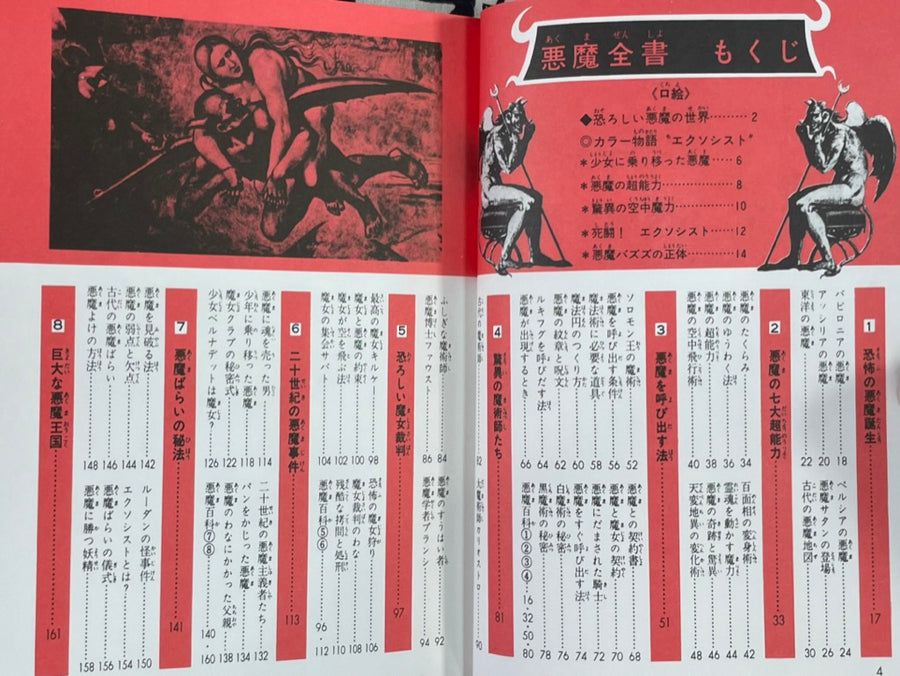 悪魔全書　もくじ
《口絵》
◆恐ろしい悪魔の世界………2
◎カラー物語“エクソシスト”
＊少女に乗り移った悪魔……6
＊悪魔の超能力……………8
＊驚異の空中魔力…………10
＊死闘！　エクソシスト……12
＊悪魔パズズの正体………14
1　恐怖の悪魔誕生……17
バビロニアの悪魔……18
アッシリアの悪魔……20
東洋の悪魔……22
ペルシアの悪魔……24
悪魔サタンの登場……26
古代の悪魔地図……30
2　悪魔の七大超能力……33
悪魔のたくらみ……34
悪魔のゆうわく法……36
悪魔の超能力……38
悪魔の空中飛行術……40
百面相の変身術……42
霊魂を動かす魔力……44
悪魔の奇跡と驚異……46
天変地異の変化術……48
3　悪魔を呼び出す法……51
ソロモン王の魔術……52
悪魔を呼び出す条件……56
魔法術に必要な道具……58
魔法円のつくり方……60
悪魔の紋章と呪文……62
ルキフゲを呼びだす法……64
悪魔が出現するとき……66
悪魔との契約書……68
悪魔と魔女の契約……70
悪魔にだまされた騎士……72
悪魔をすぐ呼び出す法……74
白魔術の秘密……76
黒魔術の秘密……78
悪魔百科①②③④……16・32・50・80
4　驚異の魔術師たち……81
82
大魔術師カリオストロ
90
ふしぎな魔術師……84
悪魔博士ファウスト……86
悪魔のすうはい者……92
悪魔学者ブラン……94
5　恐ろしい魔女裁判……97
最高の魔女キルケ……98
魔女と悪魔の約束……100
魔女が空を飛ぶ法……102
魔女の集会サバト……104
恐怖の魔女狩り……106
魔女裁判のわな……108
残酷な拷問と処刑……110
112
悪魔百科⑤⑥……96
6　二十世紀の悪魔事件……113
悪魔に魂を売った男……114
少年に乗り移った悪魔……118
魔女クラブの秘密式……122
少女ベルナデットは魔女？……126
二十世紀の悪魔主義者たち……132
パンをかじった悪魔……134
悪魔のわなにかかった父親……138
悪魔百科⑦⑧……140・160
7　悪魔ばらいの秘法……141
悪魔を見破る法……142
悪魔の弱点と欠点……144
古代の悪魔ばらい……146
悪魔よけの方法……148
ルーダンの怪事件……150
エクソシストとは？……154
悪魔ばらいの儀式……156
悪魔に勝つ妖精……158
8　巨大な悪魔王国……161
4